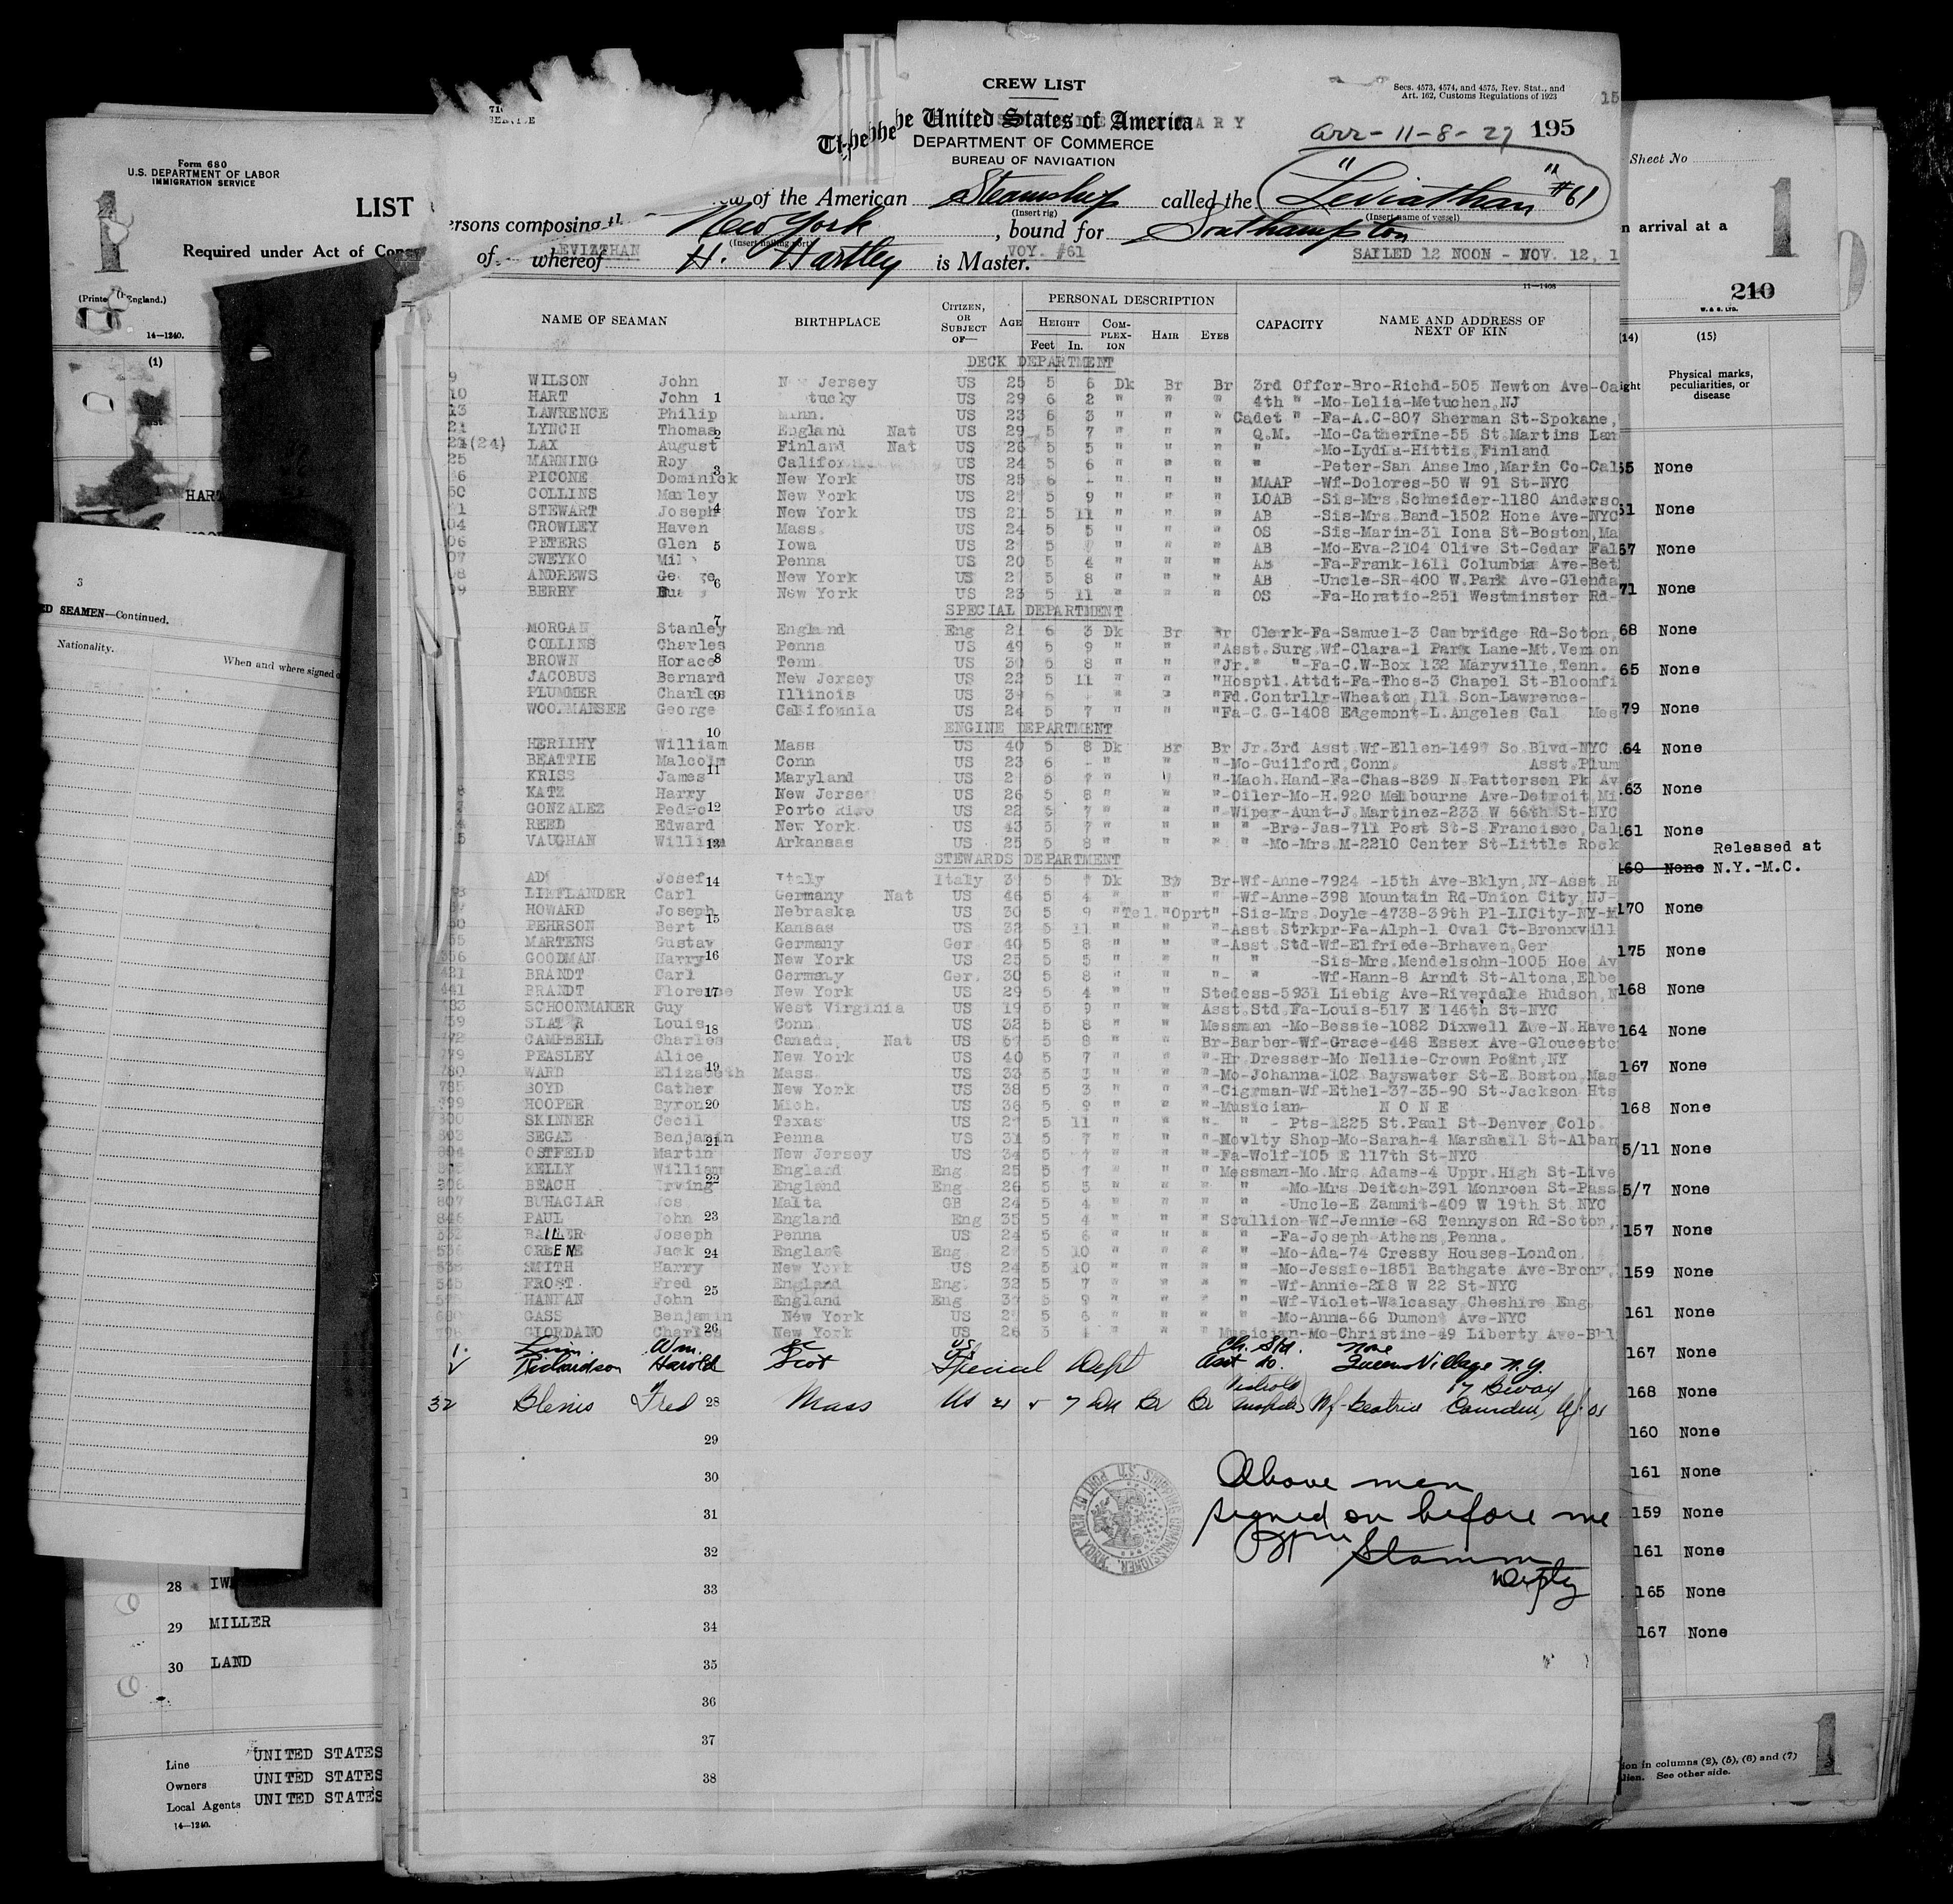 CREW LIST
Secs. 4573, 4574, and 4575, Rev. Stat., and
Art. 162, Customs Regulations of 1923
15
The United States of America
arr- 11-8-27 195
DEPARTMENT OF COMMERCE
BUREAU OF NAVIGATION
of the American Steamship called the "Leviathan" #61
(Insert rig) (Insert name of vessel)
persons composing New York, bound for Southampton
(Insert hailing port)
of whereof H. Hartley is Master.
LEVIATHAN VOY. #61 SAILED 12 NOON - NOV. 12, 1
11-1408
NAME OF SEAMAN BIRTHPLACE CITIZEN, OR SUBJECT OF— AGE PERSONAL DESCRIPTION CAPACITY NAME AND ADDRESS OF NEXT OF KIN
HEIGHT COM-PLEX-ION HAIR EYES
Feet In.
DECK DEPARTMENT
9 WILSON John New Jersey US 25 5 6 Dk Br Br 3rd Offcr-Bro-Richd-505 Newton Ave-Oa
10 HART John 1 tucky US 29 6 2 " " " 4th " -Mo-Lelia-Metuchen,NJ
13 LAWRENCE Philip Minn. US 23 6 3 " " " Cadet " -Fa-A.C-807 Sherman St-Spokane,
21 LYNCH Thomas 2 England Nat US 29 5 7 " " " Q.M. -Mo-Catherine-55 St Martins Lan
(24) LAX August Finland Nat US 26 5 5 " " " " -Mo-Lydia-Hittis Finland
25 MANNING Roy 3 Califor US 24 5 6 " " " " -Peter-San Anselmo,Marin Co-Cal
6 PICONE Dominick New York US 25 6 - " " " MAAP -Wf-Dolores-50 W 91 St-NYC
50 COLLINS Marley New York US 5 9 " " " LOAB -Sis-Mrs Schneider-1180 Anderso
1 STEWART Joseph 4 New York US 21 5 11 " " " AB -Sis-Mrs.Band-1502 Hone Ave-NYC
04 CROWLEY Haven Mass. US 24 5 5 " " " OS -Sis-Marin-31 Iona St-Boston,Ma
06 PETERS Glen 5 Iowa US 5 " " " AB -Mo-Eva-2104 Olive St-Cedar Fal
07 SWEYKO Penna US 20 5 4 " " " AB -Fa-Frank-1611 Columbia Ave-Bet
08 ANDREWS George 6 New York US 5 8 " " " AB -Uncle-SR-400 W.Park Ave-Glenda
09 BERRY New York US 23 5 11 " " " OS -Fa-Horatio-251 Westminster Rd-
SPECIAL DEPARTMENT
MORGAN Stanley 7 England Eng 21 6 3 Dk Br Br Clerk-Fa-Samuel-3 Cambridge Rd-Soton,
COLLINS Charles Penna US 49 5 9 " " "Asst.Surg Wf-Clara-1 Park Lane-Mt.Vernon
BROWN Horace 8 Tenn. US 30 5 8 " " "Jr." "-Fa-C.W-Box 132 Maryville,Tenn.
JACOBUS Bernard New Jersey US 22 5 11 " " "Hosptl.Attdt-Fa-Thos-3 Chapel St-Bloomfi
PLUMMER Charles 9 Illinois US 39 6 " " "Fd.Contrllr-Wheaton Ill Son-Lawrence-
George California US 24 5 7 " " "Fa-C.G-1408 Edgemont-L.Angeles Cal Mes
10
ENGINE DEPARTMENT
HERLIHY William Mass US 40 5 8 Dk Br Br Jr.3rd Asst Wf-Ellen-1497 So Blvd-NYC
BEATTIE Malcolm Conn US 23 6 - " " "-Mo-Guilford,Conn. Asst.Plum
KRISS James 11 Maryland US 5 " " "-Mach.Hand-Fa-Chas-839 N Patterson Pk Av
KATZ Harry New Jersey US 26 5 8 " " "-Oiler-Mo-H.920 Melbourne Ave-Detroit,Mi
GONZALEZ Pedro 12 Porto Rico US 22 5 7 " " "-Wiper-Aunt-J Martinez-233 W 66th St-NYC
REED Edward New York US 43 5 7 " " " " -Bro-Jas-711 Post St-S Francisco,Cal
VAUGHAN William 13 Arkansas US 25 5 8 " " " " -Mo-Mrs M-2210 Center St-Little Rock
STEWARDS DEPARTMENT
Josef 14 Italy Italy 5 Dk Br Br-Wf-Anne-7924 -15th Ave-Bklyn,NY-Asst H
LIEFLANDER Carl Germany Nat US 46 5 4 " " " -Wf-Anne-398 Mountain Rd-Union City,NJ-
HOWARD Joseph 15 Nebraska US 30 5 9 "Tel."Oprt" -Sis-Mrs Doyle-4738-39th Pl-LICity-NY-
PEHRSON Bert Kansas US 32 5 11 " " "-Asst Strkpr-Fa-Alph-1 Oval Ct-Bronxvill
MARTENS Gustav Germany Ger 40 5 8 " " "-Asst Std-Wf-Elfriede-Brhaven,Ger
GOODMAN Harry 16 New York US 25 5 5 " " " " -Sis-Mrs.Mendelsohn-1005 Hoe Av
421 BRANDT Carl Germany Ger. 30 5 8 " " "- " -Wf-Hann-8 Arndt St-Altona,Elbe
441 BRANDT Florence 17 New York US 29 5 4 " " Stedess-5931 Liebig Ave-Riverdale Hudson,N
SCHOONMAKER Guy West Virginia US 19 5 9 " " Asst.Std Fa-Louis-517 E 146th St-NYC
Louis 18 Conn US 32 5 8 " " Messman -Mo-Bessie-1082 Dixwell Ave-N.Have
CAMPBELL Charles Canada Nat US 57 5 8 " " Br-Barber-Wf-Grace-448 Essex Ave-Glouceste
779 PEASLEY Alice New York US 40 5 7 " " "-Hr Dresser-Mo Nellie-Crown Point,NY
780 WARD Elizabeth 19 Mass US 33 5 3 " " "-Mo-Johanna-102 Bayswater St-E Boston Mas
785 BOYD Cather New York US 38 5 3 " " "-Cigrman-Wf-Ethel-37-35-90 St-Jackson Hts
799 HOOPER Byron 20 Mich. US 36 5 9 " " "-Musician- N O N E
800 SKINNER Cecil Texas US 5 11 " " "- " - Pts-1225 St.Paul St-Denver Colo.
803 SEGAL Benjamin 21 Penna US 31 5 7 " " "-Novlty Shop-Mo-Sarah-4 Marshall St-Alban
804 OSTFELD Martin New Jersey US 34 5 " " "-Fa-Wolf-105 E 117th St-NYC
KELLY William England Eng 25 5 7 " " " Messman-Mo.Mrs Adams-4 Uppr.High St-Live
806 BEACH Irving 22 England Eng 26 5 5 " " " " -Mo-Mrs Deitch-391 Monroen St-Pass
807 BUHAGIAR Jos Malta GB 24 5 4 " " " " -Uncle-E Zammit-409 W 19th St NYC
PAUL John 23 England Eng 35 5 4 " " " Scullion-Wf-Jennie-68 Tennyson Rd-Soton,
Joseph Penna US 24 5 6 " " " " -Fa-Joseph-Athens,Penna.
GREENE Jack 24 England Eng 5 10 " " " " -Mo-Ada-74 Cressy Houses-London.
SMITH Harry New York US 24 5 10 " " " " -Mo-Jessie-1851 Bathgate Ave-Bronx,
FROST Fred 25 England Eng. 32 5 7 " " " " -Wf-Annie-218 W 22 St-NYC
John England Eng 5 9 " " " " -Wf-Violet-Walcasay,Cheshire Eng.
GASS Benjamin New York US 5 6 " " " " -Mo-Anna-66 Dumont Ave-NYC
GIORDANO Charles 26 New York US 26 5 4 " " " Musician-Mo-Christine-49 Liberty Ave-Bkl
1. Wm. US Ch. Std. None
Richardson Harold Scot Special Dept Asst do. Queens Village N.Y.
32 Blenis Fred 28 Mass US 21 5 7 Dk Br Br Wf-Beatrice Camden, NJ. OS
17 Biway
29
30
31
32
33
34
35
36
37
38
Above men
signed on before me
Stamm
Depty
U.S. SHIPPING COMMISSIONER. PORT OF NEW YORK.
Form 680
U.S. DEPARTMENT OF LABOR
IMMIGRATION SERVICE
1
LIST
Required under Act of Cong
(Printed in England.)
14-1240.
(1)
HART
3
ED SEAMEN—Continued.
Nationality.
When and where signed o
28 IW
29 MILLER
30 LAND
Line UNITED STATES
Owners UNITED STATES
Local Agents UNITED STATES
14-1240.
Sheet No
1
n arrival at a
210
W. & S. LTD.
(14) (15)
ight Physical marks, peculiarities, or disease
65 None
61 None
67 None
71 None
68 None
65 None
79 None
64 None
63 None
161 None
Released at
160 None N.Y.-M.C.
170 None
175 None
168 None
164 None
167 None
168 None
5/11 None
5/7 None
157 None
159 None
161 None
167 None
168 None
160 None
161 None
159 None
161 None
165 None
167 None
ion in columns (2), (5), (6) and (7)
alien. See other side.
1